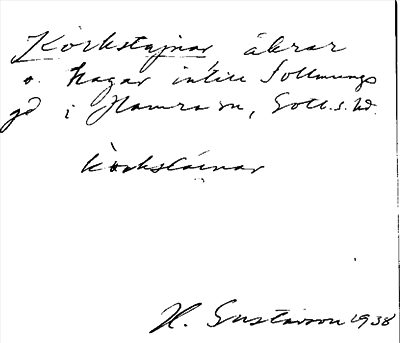 Körkstajnar åkrar
o. hagar intill Sollmungs
gd i Hamra sn, Gotl. s. hd.
körkstainar
H. Gustavson 1938